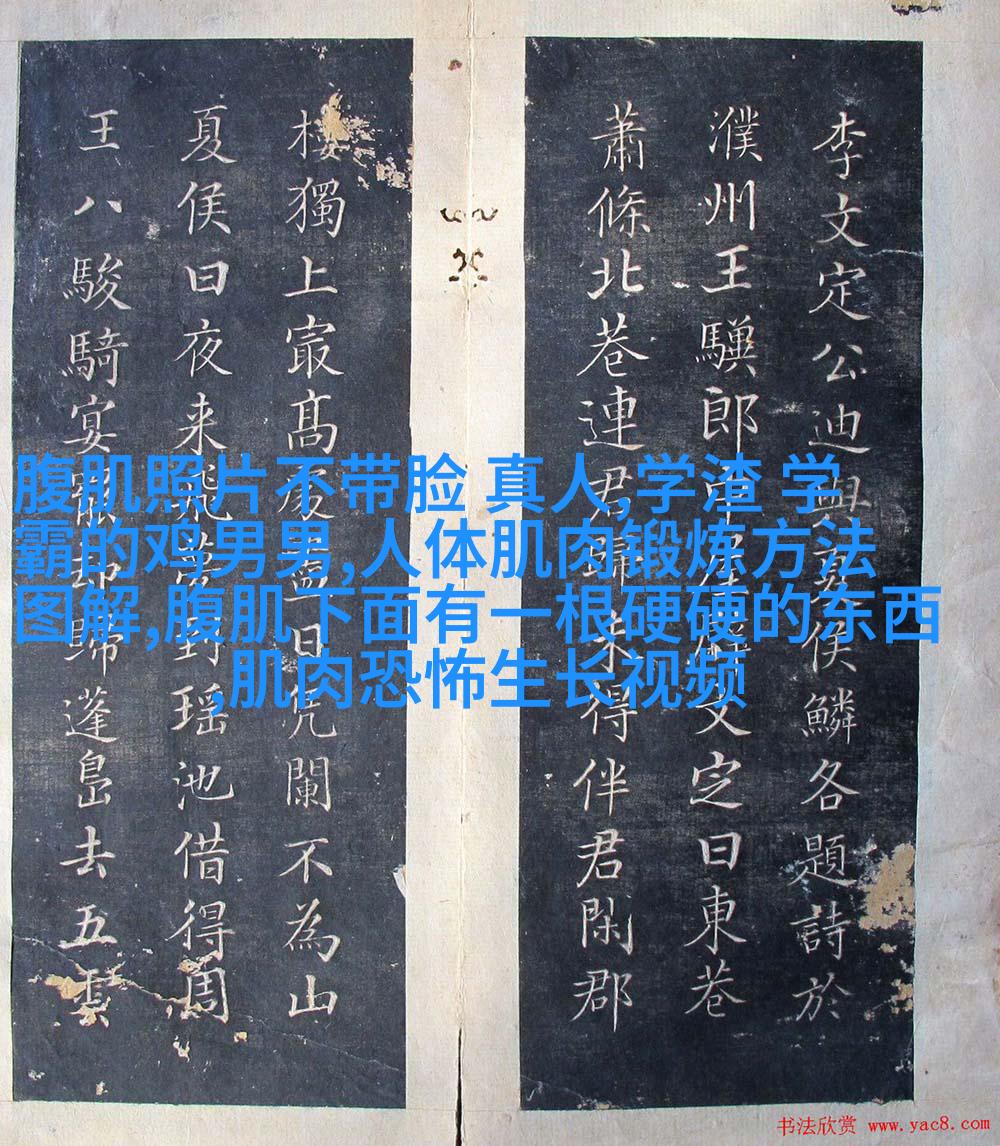 李文定公迪與夏侯鱗各題詩於
濮州王驥郎屋文定曰東巷
蕭條北巷連君歸未得伴君閑郡
樓獨上㝡髙層盡日凭闌不為山
夏侯曰夜来飛夢到瑶池借得周
王八駿騎宴罷却歸蓬島去五雲
腹肌照片不带脸 真人,学渣 学
霸的鸡男男,人体肌肉锻炼方法
图解,腹肌下面有一根硬硬的东西
,肌肉恐怖生长视频
书法欣赏 www.yac8.com